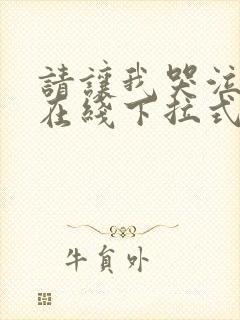 請讓我哭泣
在綫下拉式
牛貟外